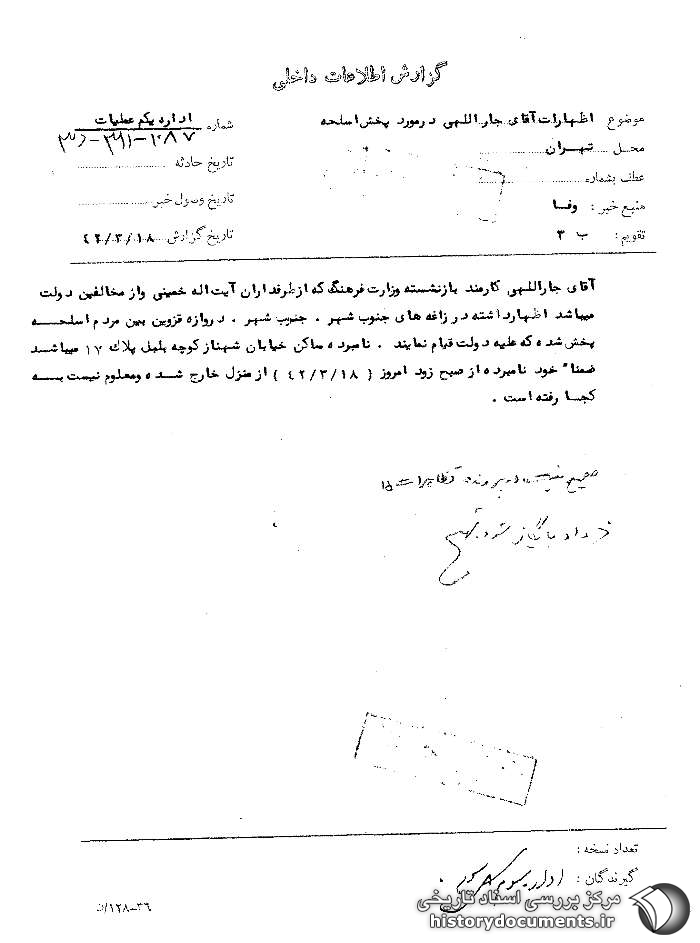 گزارش اطلاعات داخلی
موضوع اظهارات آقای جاراللهی درمورد پخش اسلحه
شماره اداره یکم عملیات
محل تهران
تاریخ حادثه
عطف بشماره
تاریخ وصول خبر
منبع خبر : وفا
تاریخ گزارش ٤٢/٣/١٨
تقویم : ب ٣
آقای جاراللهی کارمند بازنشسته وزارت فرهنگ که از طرفداران آیت اله خمینی واز مخالفین دولت
میباشد اظهارداشته در زاغه های جنوب شهر . جنوب شهر . دروازه قزوین بین مردم اسلحه
پخش شده که علیه دولت قیام نمایند . نامبرده ساکن خیابان شهناز کوچه بلبل پلاك ١٧ میباشد
ضمناً خود نامبرده از صبح زود امروز ( ٤٢/٣/١٨ ) از منزل خارج شده ومعلوم نیست به
کجا رفته است .
صحیح نیست در پرونده تظاهرات ١٥
خرداد بایگانی شود
تعداد نسخه :
گیرندگان : اداره سوم
١٢٨-٣٦/ن
مرکز بررسی اسناد تاریخی
historydocuments.ir